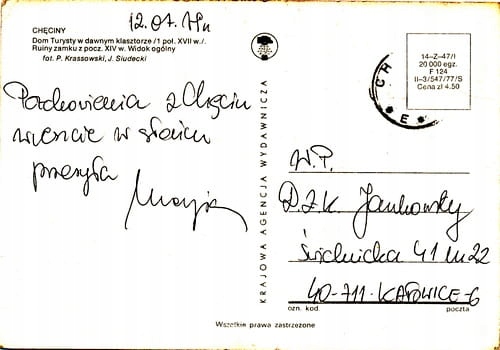 CHĘCINY
Dom Turysty w dawnym klasztorze /1 poł. XVII w./.
Ruiny zamku z pocz. XIV w. Widok ogólny
fot. P. Krassowski, J. Siudecki
Pozdrowienia z Chęcin
w słońcu
przesyła
KRAJOWA AGENCJA WYDAWNICZA
14–Z–47/I
20 000 egz.
F 124
II–3/547/77/S
Cena zł 4.50
CH
E
W.P.
D.Z.K Jankowscy
Świdnicka 41 m 22
40-711-KATOWICE-6
ozn. kod. poczta
Wszelkie prawa zastrzeżone